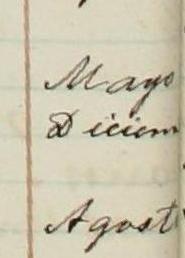 Mayo
Diciem
Agost